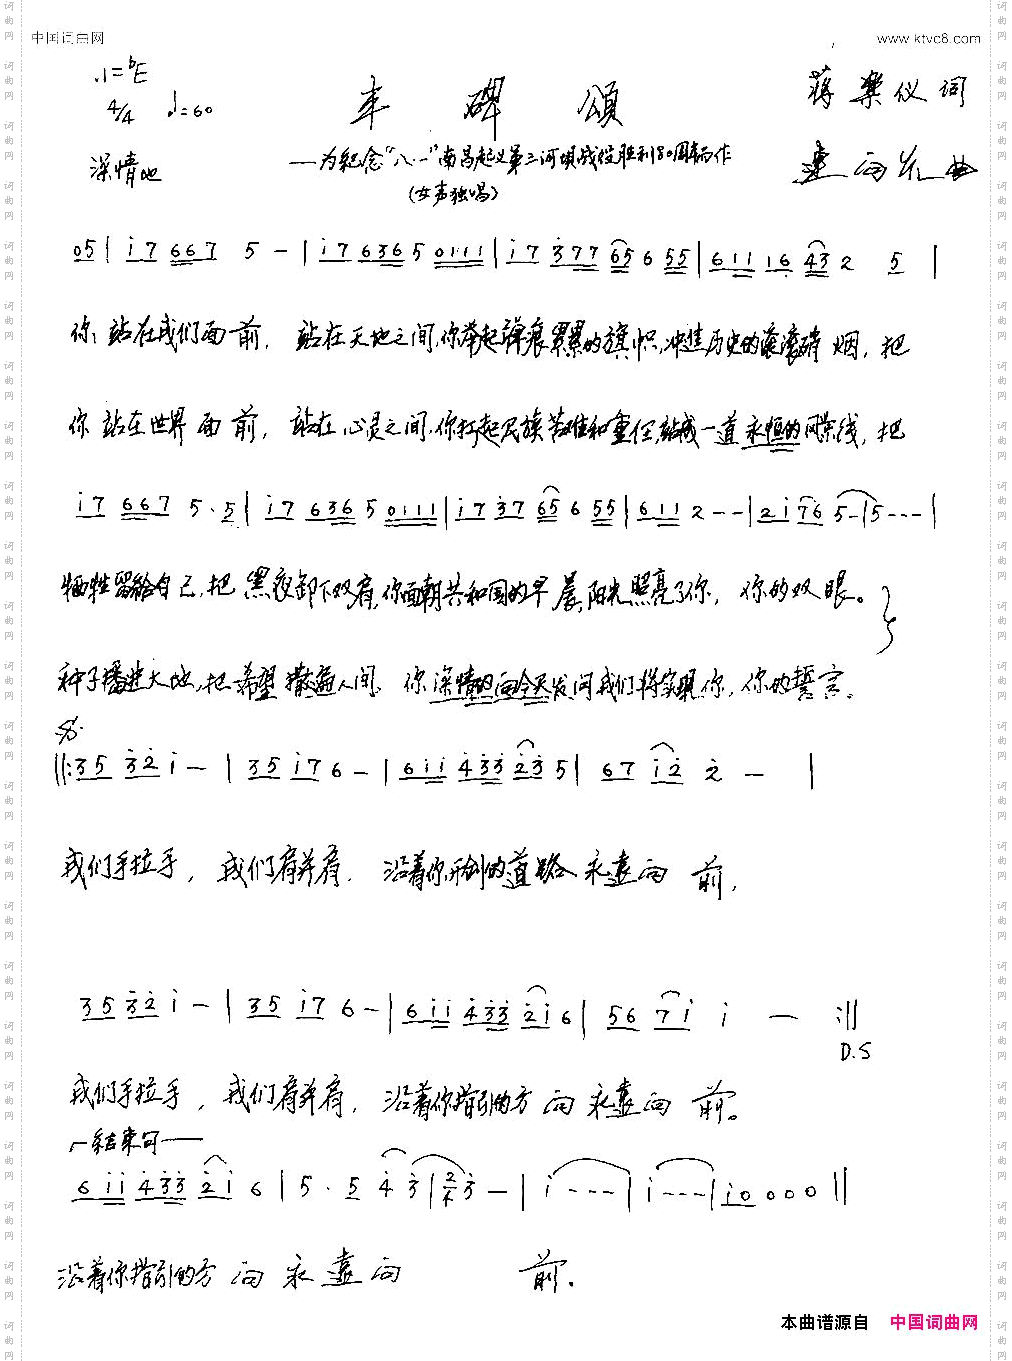 中国词曲网 www.ktvc8.com
1=bE
4/4 ♩=60 丰 碑 颂 蒋 乐 仪 词
深情地 —为纪念"八·一"南昌起义第三河坝战役胜利80周年而作 曲
(女声独唱)
05 | i7 667 5 - | i7 6365 0111 | i7 377 65 6 55 | 611 16 43 2 5 |
你 站在我们面前, 站在天地之间,你举起弹痕累累的旗帜,冲进历史的滚滚硝烟, 把
你 站在世界面前, 站在心灵之间,你扛起民族苦难和重任,站成一道永恒的风景线, 把
i7 667 5·5 | i7 6365 0111 | i7 37 65 6 55 | 611 2 - - | 2i76 5 - | 5 - - - |
牺牲留给自己,把黑夜卸下双肩,你面朝共和国的早晨,阳光照亮了你, 你的双眼。
种子播进大地,把希望撒遍人间, 你深情的向今天发问我们将实现你, 你的誓言。
||: 35 32 i - | 35 i7 6 - | 6ii 433 23 5 | 67 i2 2 - |
我们手拉手, 我们肩并肩, 沿着你开创的道路永远向前,
35 32 i - | 35 i7 6 - | 6ii 433 2i 6 | 56 7i i - :||
D.S
我们手拉手, 我们肩并肩, 沿着你指引的方向永远向前。
结束句
6ii 433 2i 6 | 5 · 5 4 3 | 2/4 3 - | i - - - | i - - - | i0 0 0 0 ||
沿着你指引的方向永远向 前.
本曲谱源自 中国词曲网